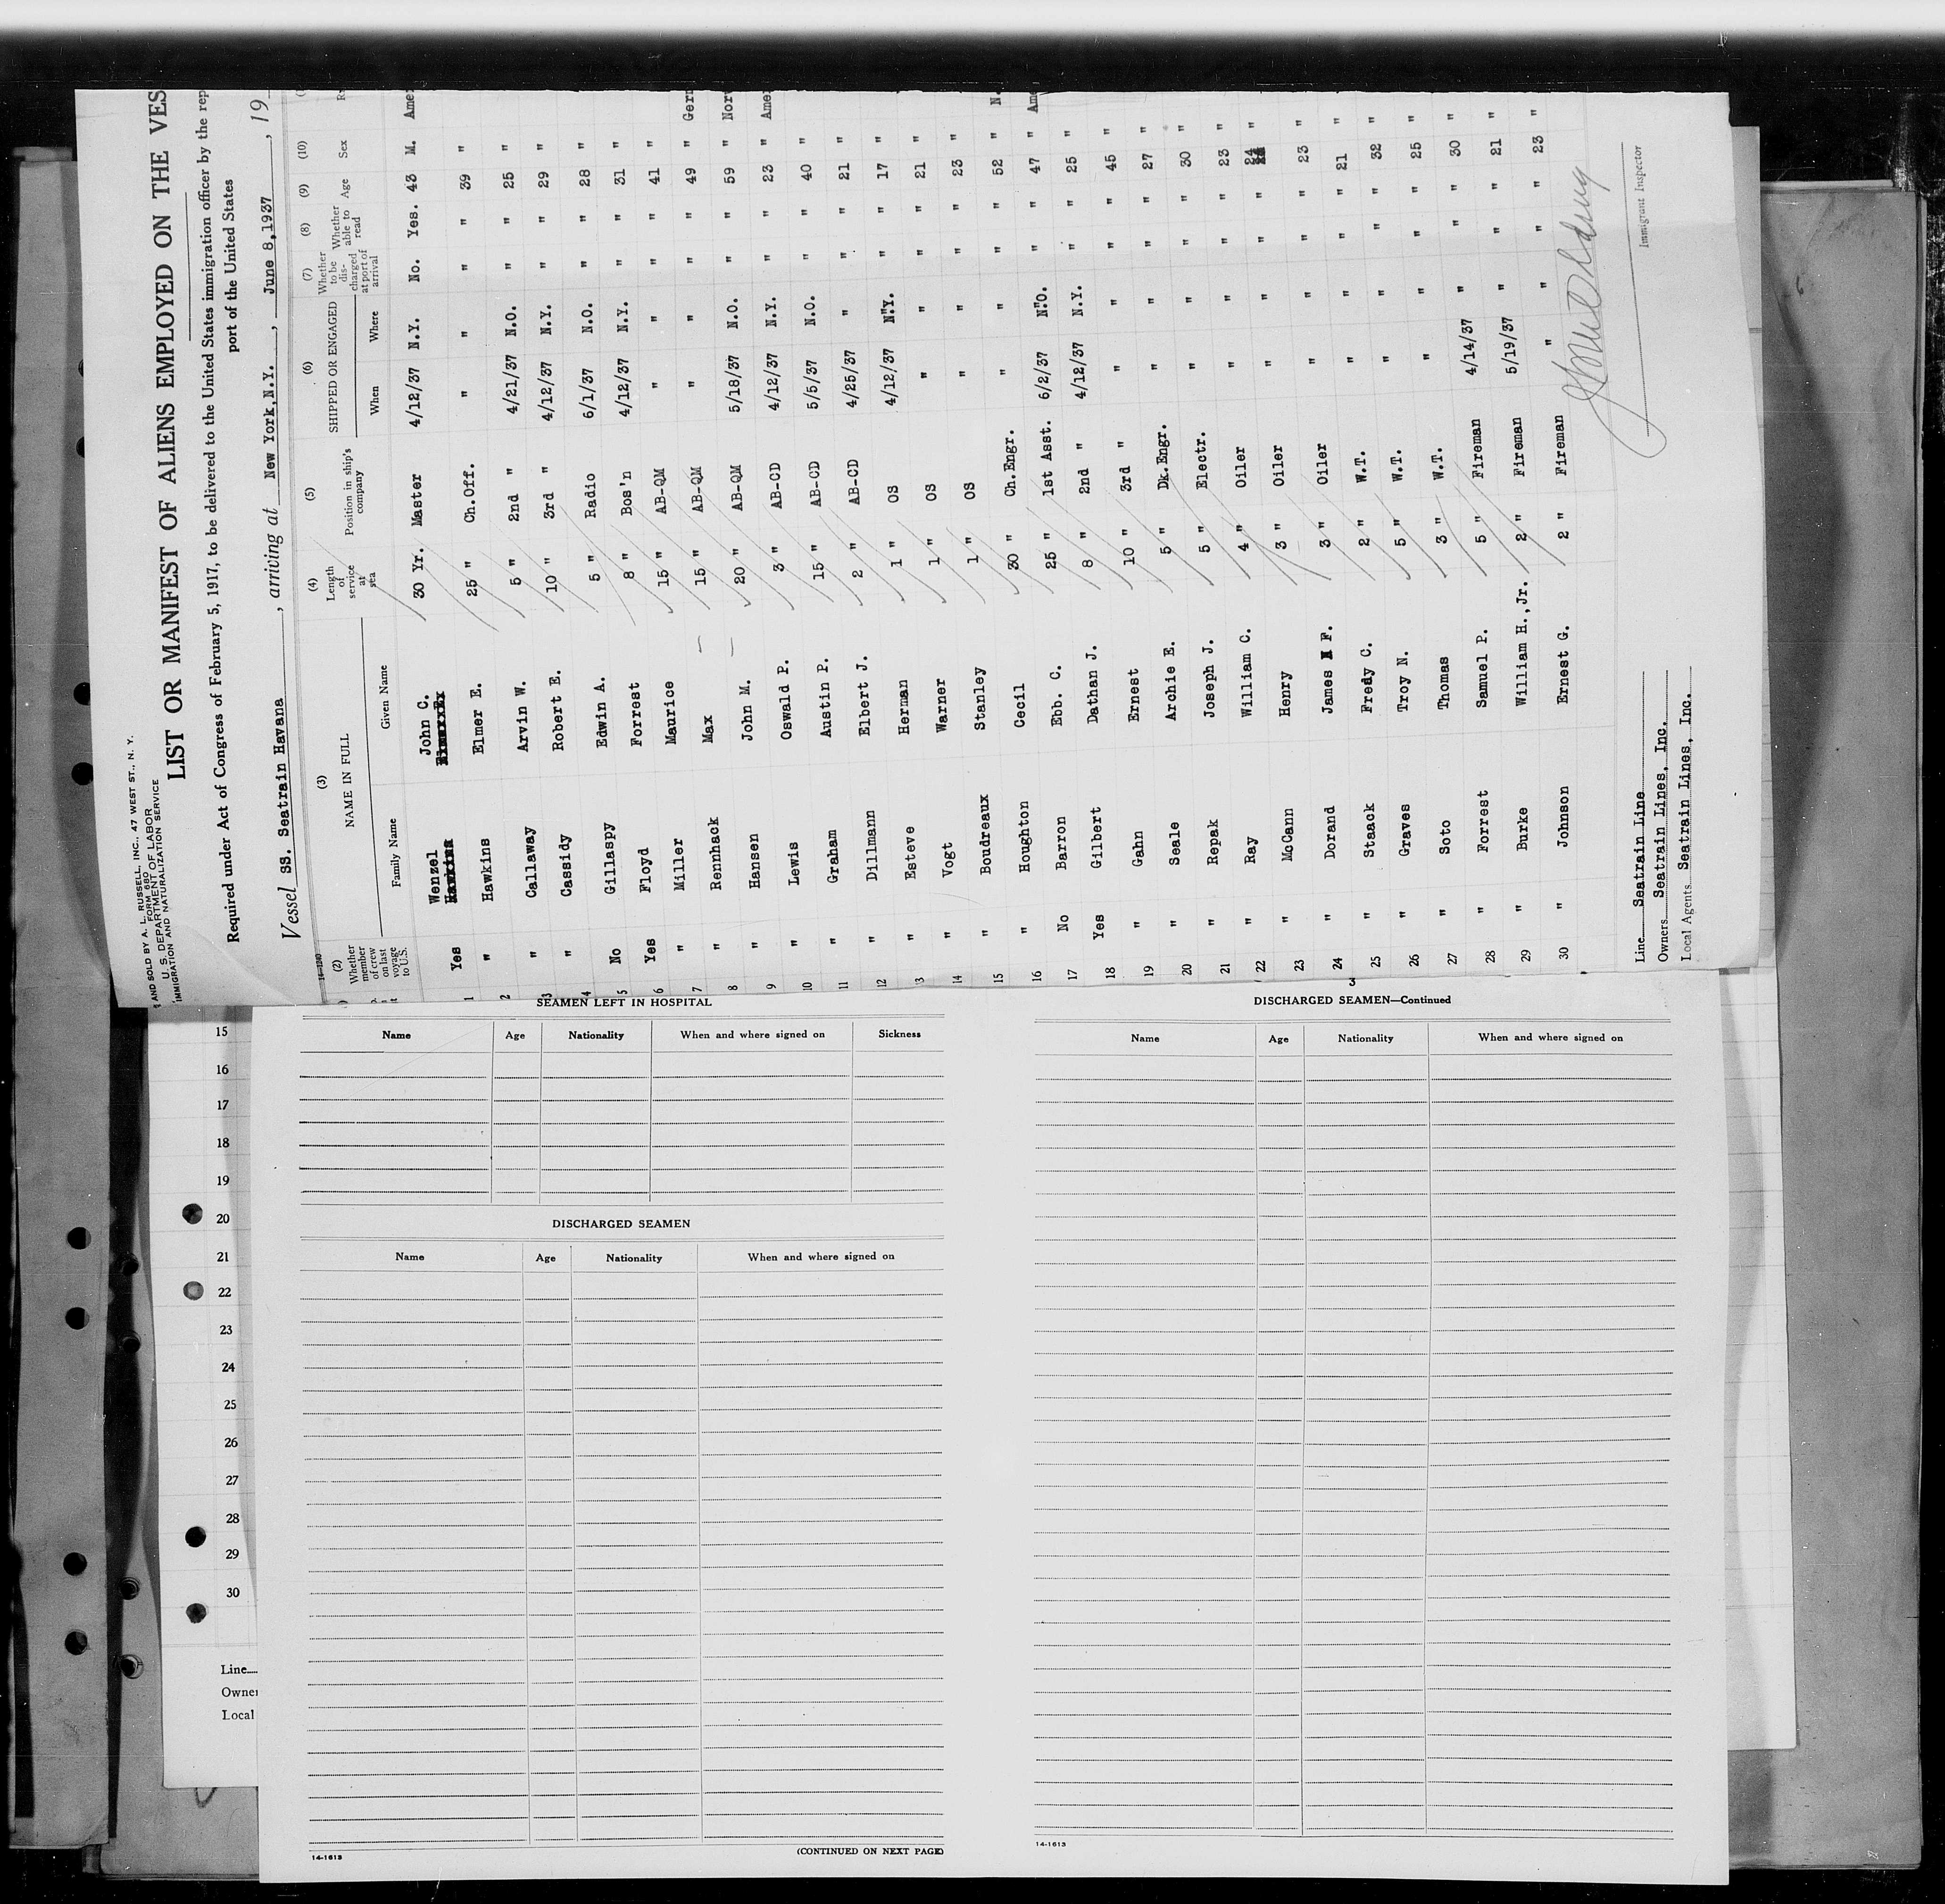 AND SOLD BY A. L. RUSSELL, INC., 47 WEST ST., N. Y.
FORM 680
U. S. DEPARTMENT OF LABOR
IMMIGRATION AND NATURALIZATION SERVICE
LIST OR MANIFEST OF ALIENS EMPLOYED ON THE VES
Required under Act of Congress of February 5, 1917, to be delivered to the United States immigration officer by the rep
port of the United States
Vessel SS. Seatrain Havana, arriving at New York,N.Y., June 8,1937, 19
14-1240
(2) (3) (4) (5) (6) (7) (8) (9) (10)
Whether member of crew on last voyage to U.S. NAME IN FULL Family Name Given Name Length of service at sea Position in ship's company SHIPPED OR ENGAGED When Where Whether to be discharged at port of arrival Whether able to read Age Sex
1 Yes Wenzel John C. 30 Yr. Master 4/12/37 N.Y. No. Yes. 43 M. Amer
2 " Hawkins Elmer E. 25 " Ch.Off. " " " " 39 "
3 " Callaway Arvin W. 5 " 2nd " 4/21/37 N.O. " " 25 "
4 " Cassidy Robert E. 10 " 3rd " 4/12/37 N.Y. " " 29 "
5 No Gillaspy Edwin A. 5 " Radio 6/1/37 N.O. " " 28 "
6 Yes Floyd Forrest 8 " Bos'n 4/12/37 N.Y. " " 31 "
7 " Miller Maurice 15 " AB-QM " " " " 41 "
8 " Rennhack Max 15 " AB-QM " " " " 49 " Germ
9 " Hansen John M. 20 " AB-QM 5/18/37 N.O. " " 59 " Norw
10 " Lewis Oswald P. 3 " AB-CD 4/12/37 N.Y. " " 23 " Amer
11 " Graham Austin P. 15 " AB-CD 5/5/37 N.O. " " 40 "
12 " Dillmann Elbert J. 2 " AB-CD 4/25/37 " " " 21 "
13 " Esteve Herman 1 " OS 4/12/37 N.Y. " " 17 "
14 " Vogt Warner 1 " OS " " " " 21 "
15 " Boudreaux Stanley 1 " OS " " " " 23 "
16 " Houghton Cecil 30 " Ch.Engr. " " " " 52 " N.
17 No Barron Ebb. C. 25 " 1st Asst. 6/2/37 N.O. " " 47 " Ame
18 Yes Gilbert Dathan J. 8 " 2nd " 4/12/37 N.Y. " " 25 "
19 " Gahn Ernest 10 " 3rd " " " " " 45 "
20 " Seale Archie E. 5 " Dk.Engr. " " " " 27 "
21 " Repak Joseph J. 5 " Electr. " " " " 30 "
22 " Ray William C. 4 " Oiler " " " " 23 "
23 " McCann Henry 3 " Oiler " " " " 24 "
24 " Dorand James F. 3 " Oiler " " " " 23 "
25 " Staack Fredy C. 2 " W.T. " " " " 21 "
26 " Graves Troy N. 5 " W.T. " " " " 32 "
27 " Soto Thomas 3 " W.T. " " " " 25 "
28 " Forrest Samuel P. 5 " Fireman 4/14/37 " " " 30 "
29 " Burke William H.,Jr. 2 " Fireman 5/19/37 " " " 21 "
30 " Johnson Ernest G. 2 " Fireman " " " " 23 "
Line Seatrain Line
Owners Seatrain Lines, Inc.
Local Agents Seatrain Lines, Inc.
Immigrant Inspector
3
SEAMEN LEFT IN HOSPITAL
Name Age Nationality When and where signed on Sickness
DISCHARGED SEAMEN
Name Age Nationality When and where signed on
14-1613
(CONTINUED ON NEXT PAGE)
DISCHARGED SEAMEN—Continued
Name Age Nationality When and where signed on
14-1613
15
16
17
18
19
20
21
22
23
24
25
26
27
28
29
30
Line
Owner
Local